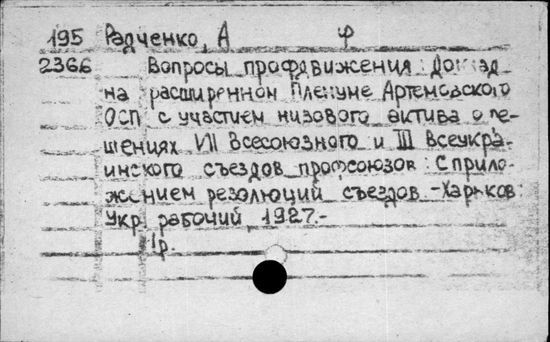 195 Радченко, А Ф
2366 Вопросы профдвижения: Доклад
на расширенном Пленуме Артемовского
ОСП с участием низового актива о ре-
шениях VII Всесоюзного и III Всеукра-
инского съездов профсоюзов: С прило-
жением резолюций съездов.-Харьков:
Укр. рабочий, 1927.-
1р.